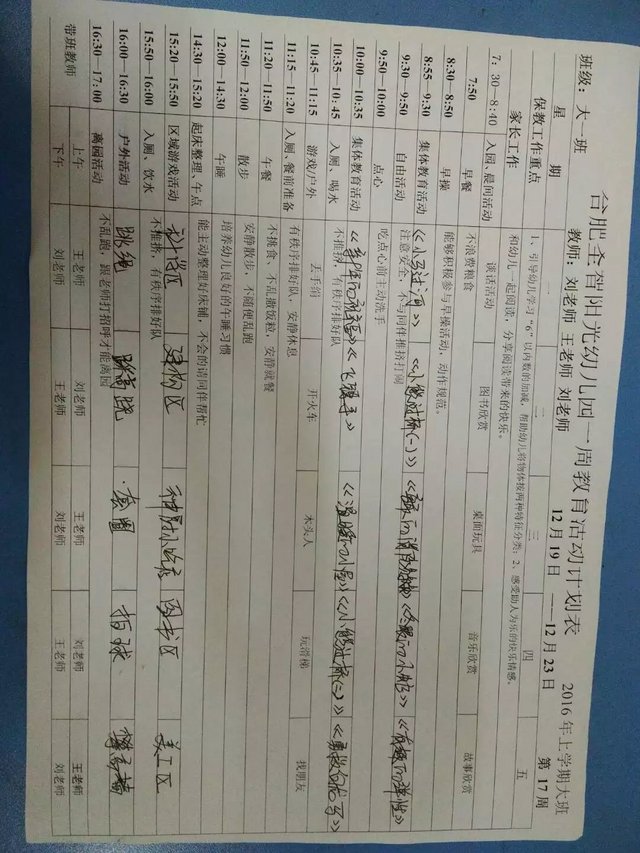 合肥全智阳光幼儿园一周教育活动计划表 2016年上学期大班
班级：大一班 教师：刘老师 王老师 刘老师 12月19日——12月23日 第17周
星期 一 二 三 四 五
保教工作重点 1、引导幼儿学习“6”以内数的加减，帮助幼儿将物体按两种特征分类；2、感受助人为乐的快乐情感。
家长工作 和幼儿一起阅读，分享阅读带来的快乐。
7：30—8:40 入园/晨间活动 谈话活动 图书欣赏 桌面玩具 音乐欣赏 故事欣赏
7:50 早餐 不浪费粮食
8:30—8:50 早操 能够积极参与早操活动，动作规范。
8:55—9:30 集体教育活动 《小马过河》 《小熊过桥(一)》
9:30—9:50 自由活动 注意安全，不与同伴推挤打闹
9:50—10:00 点心 吃点心前主动洗手
10:00—10:35 集体教育活动 《小熊过桥(二)》
10:35—10:45 入厕、喝水 不推挤，有秩序排好队
10:45—11:15 游戏/户外 丢手绢 开火车 木头人 玩滑梯 找朋友
11:15—11:20 入厕、餐前准备 有秩序排好队、安静休息
11:20—11:50 午餐 不挑食、不乱撒饭粒，安静就餐
11:50—12:00 散步 安静散步，不随便乱跑
12:00—14:30 午睡 培养幼儿良好的午睡习惯
14:30—15:20 起床整理、午点 能主动整理好床铺，不会的请同伴帮忙
15:20—15:50 区域游戏活动 建构区 图书区 美工区
15:50—16:00 入厕、饮水 不推挤，有秩序排好队
16:00—16:30 户外活动 跳绳 踩高跷 套圈 拍球
16:30—17:00 离园活动 不乱跑，跟老师打招呼才能离园
带班教师 上午 王老师 刘老师 王老师 刘老师 王老师
下午 刘老师 王老师 刘老师 王老师 刘老师